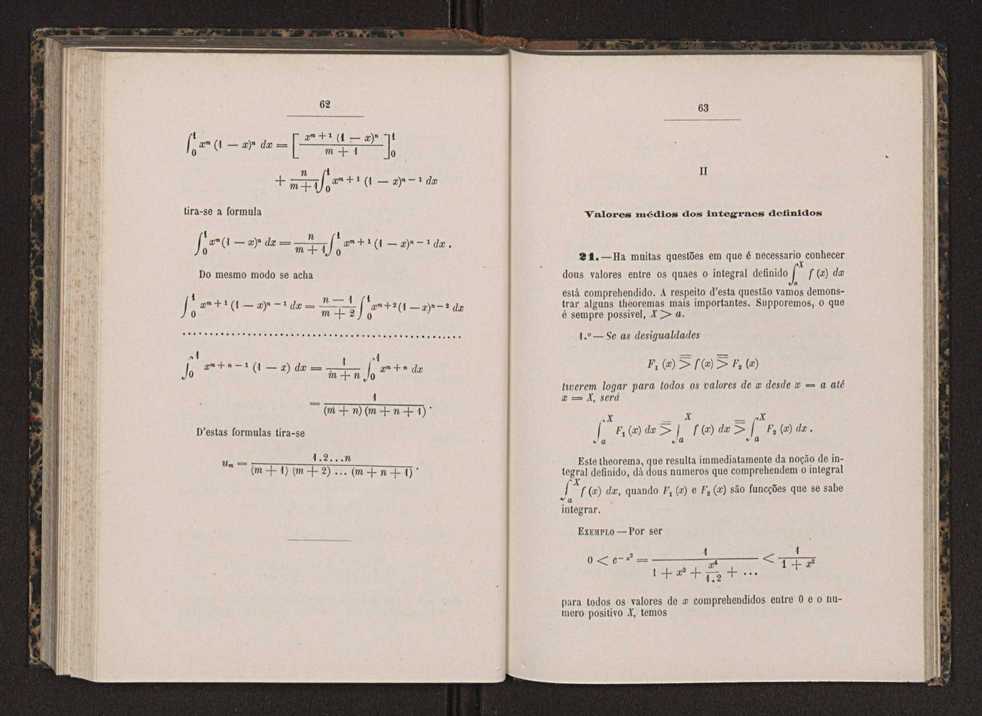 62
∫₀¹ xᵐ (1 — x)ⁿ dx = [ xᵐ⁺¹ (1 — x)ⁿ / m + 1 ]₀¹
+ n / m + 1 ∫₀¹ xᵐ⁺¹ (1 — x)ⁿ⁻¹ dx
tira-se a formula
∫₀¹ xᵐ (1 — x)ⁿ dx = n / m + 1 ∫₀¹ xᵐ⁺¹ (1 — x)ⁿ⁻¹ dx .
Do mesmo modo se acha
∫₀¹ xᵐ⁺¹ (1 — x)ⁿ⁻¹ dx = n — 1 / m + 2 ∫₀¹ xᵐ⁺² (1 — x)ⁿ⁻² dx
. . . . . . . . . . . . . . . . . . . . . . . . . . . . . . . . . . . . . . . .
∫₀¹ xᵐ⁺ⁿ⁻¹ (1 — x) dx = 1 / m + n ∫₀¹ xᵐ⁺ⁿ dx
= 1 / (m + n) (m + n + 1) .
D'estas formulas tira-se
uₙ = 1 . 2 . . . n / (m + 1) (m + 2) . . . (m + n + 1) .
63
II
Valores médios dos integraes definidos
21. — Ha muitas questões em que é necessario conhecer
dous valores entre os quaes o integral definido ∫ₐˣ f (x) dx
está comprehendido. A respeito d'esta questão vamos demons-
trar alguns theoremas mais importantes. Supporemos, o que
é sempre possivel, X > a.
1.º — Se as desigualdades
F₁ (x) ≧ f (x) ≧ F₂ (x)
tiverem logar para todos os valores de x desde x = a até
x = X, será
∫ₐˣ F₁ (x) dx ≧ ∫ₐˣ f (x) dx ≧ ∫ₐˣ F₂ (x) dx .
Este theorema, que resulta immediatamente da noção de in-
tegral definido, dá dous numeros que comprehendem o integral
∫ₐˣ f (x) dx, quando F₁ (x) e F₂ (x) são funcções que se sabe
integrar.
EXEMPLO — Por ser
0 < e⁻ˣ² = 1 / 1 + x² + x⁴ / 1.2 + . . . < 1 / 1 + x²
para todos os valores de x comprehendidos entre 0 e o nu-
mero positivo X, temos